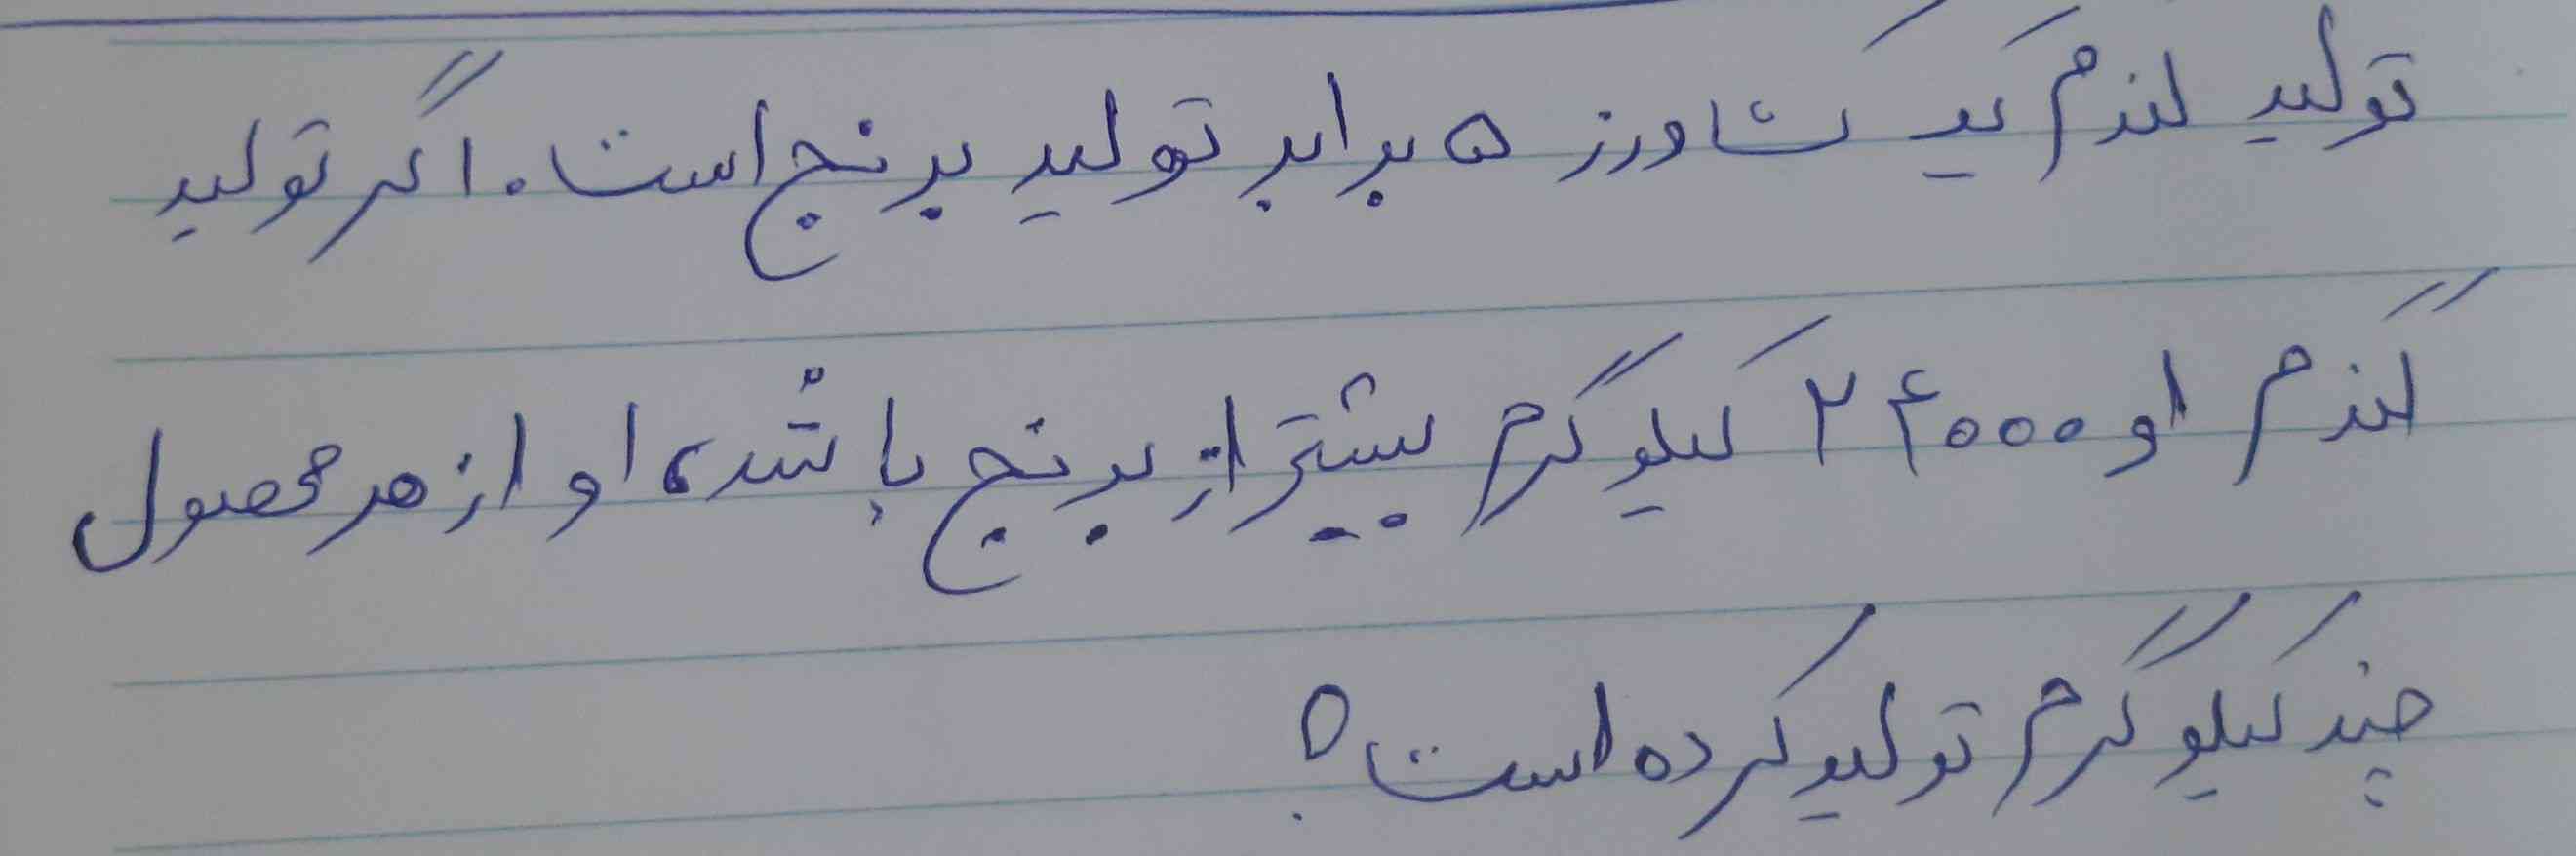 تولید گندم یک کشاورز ۵ برابر تولید برنج است. اگر تولید
گندم او ۲۴۰۰۰ کیلوگرم بیشتر از برنج باشد، او از هر محصول
چند کیلوگرم تولید کرده است؟